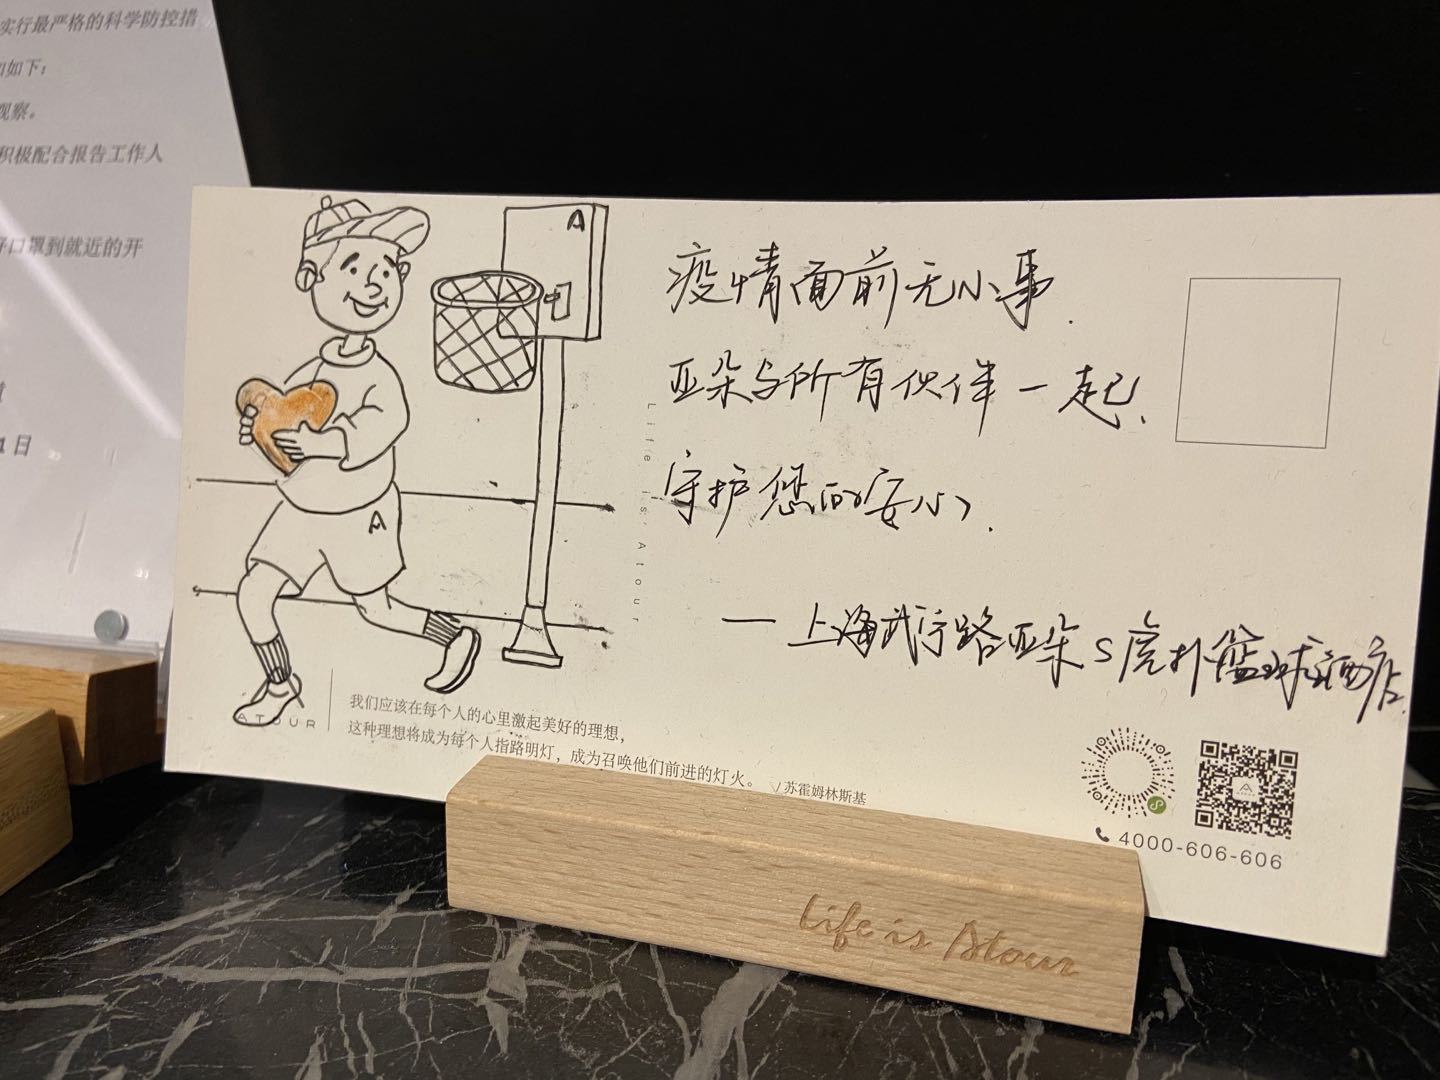 实行最严格的科学防控措
如下：
观察。
积极配合报告工作人
口罩到就近的开
1日
A
疫情面前无小事.
亚朵与所有伙伴一起、
守护您的安心.
——上海武宁路亚朵S虎扑篮球酒店.
A
Life is Atour
ATOUR
我们应该在每个人的心里激起美好的理想，
这种理想将成为每个人指路明灯，成为召唤他们前进的灯火。 苏霍姆林斯基
4000-606-606
Life is Atour